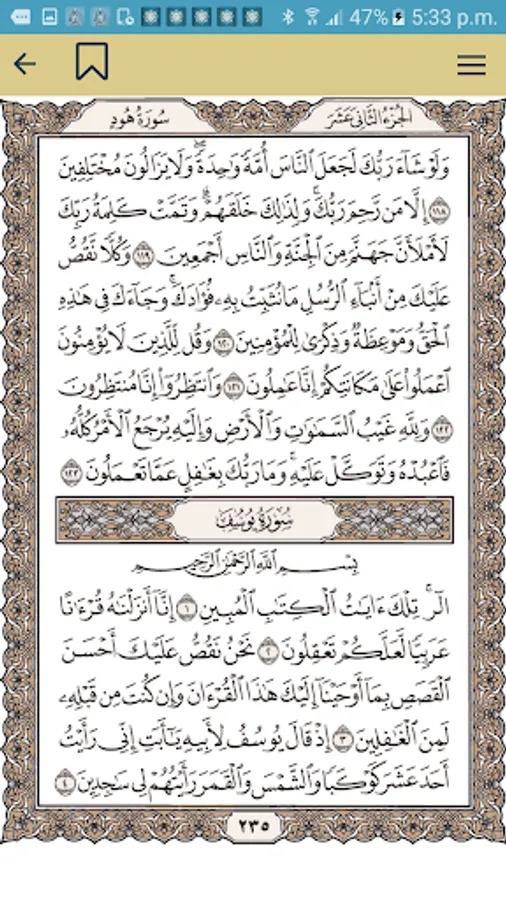 47% 5:33 p.m.
سُورَةُ هُودٍ الجُزءُ الثَّانِي عَشَرَ
وَلَوْ شَآءَ رَبُّكَ لَجَعَلَ ٱلنَّاسَ أُمَّةً وَٰحِدَةً ۖ وَلَا يَزَالُونَ مُخْتَلِفِينَ
١١٨ إِلَّا مَن رَّحِمَ رَبُّكَ ۚ وَلِذَٰلِكَ خَلَقَهُمْ ۗ وَتَمَّتْ كَلِمَةُ رَبِّكَ
لَأَمْلَأَنَّ جَهَنَّمَ مِنَ ٱلْجِنَّةِ وَٱلنَّاسِ أَجْمَعِينَ ١١٩ وَكُلًّا نَّقُصُّ
عَلَيْكَ مِنْ أَنۢبَآءِ ٱلرُّسُلِ مَا نُثَبِّتُ بِهِۦ فُؤَادَكَ ۚ وَجَآءَكَ فِى هَٰذِهِ
ٱلْحَقُّ وَمَوْعِظَةٌ وَذِكْرَىٰ لِلْمُؤْمِنِينَ ١٢٠ وَقُل لِّلَّذِينَ لَا يُؤْمِنُونَ
ٱعْمَلُوا۟ عَلَىٰ مَكَانَتِكُمْ إِنَّا عَٰمِلُونَ ١٢١ وَٱنتَظِرُوٓا۟ إِنَّا مُنتَظِرُونَ
١٢٢ وَلِلَّهِ غَيْبُ ٱلسَّمَٰوَٰتِ وَٱلْأَرْضِ وَإِلَيْهِ يُرْجَعُ ٱلْأَمْرُ كُلُّهُۥ
فَٱعْبُدْهُ وَتَوَكَّلْ عَلَيْهِ ۚ وَمَا رَبُّكَ بِغَٰفِلٍ عَمَّا تَعْمَلُونَ ١٢٣
سُورَةُ يُوسُفَ
بِسْمِ ٱللَّهِ ٱلرَّحْمَٰنِ ٱلرَّحِيمِ
الٓر ۚ تِلْكَ ءَايَٰتُ ٱلْكِتَٰبِ ٱلْمُبِينِ ١ إِنَّآ أَنزَلْنَٰهُ قُرْءَٰنًا
عَرَبِيًّا لَّعَلَّكُمْ تَعْقِلُونَ ٢ نَحْنُ نَقُصُّ عَلَيْكَ أَحْسَنَ
ٱلْقَصَصِ بِمَآ أَوْحَيْنَآ إِلَيْكَ هَٰذَا ٱلْقُرْءَانَ وَإِن كُنتَ مِن قَبْلِهِۦ
لَمِنَ ٱلْغَٰفِلِينَ ٣ إِذْ قَالَ يُوسُفُ لِأَبِيهِ يَٰٓأَبَتِ إِنِّى رَأَيْتُ
أَحَدَ عَشَرَ كَوْكَبًا وَٱلشَّمْسَ وَٱلْقَمَرَ رَأَيْتُهُمْ لِى سَٰجِدِينَ ٤
٢٣٥